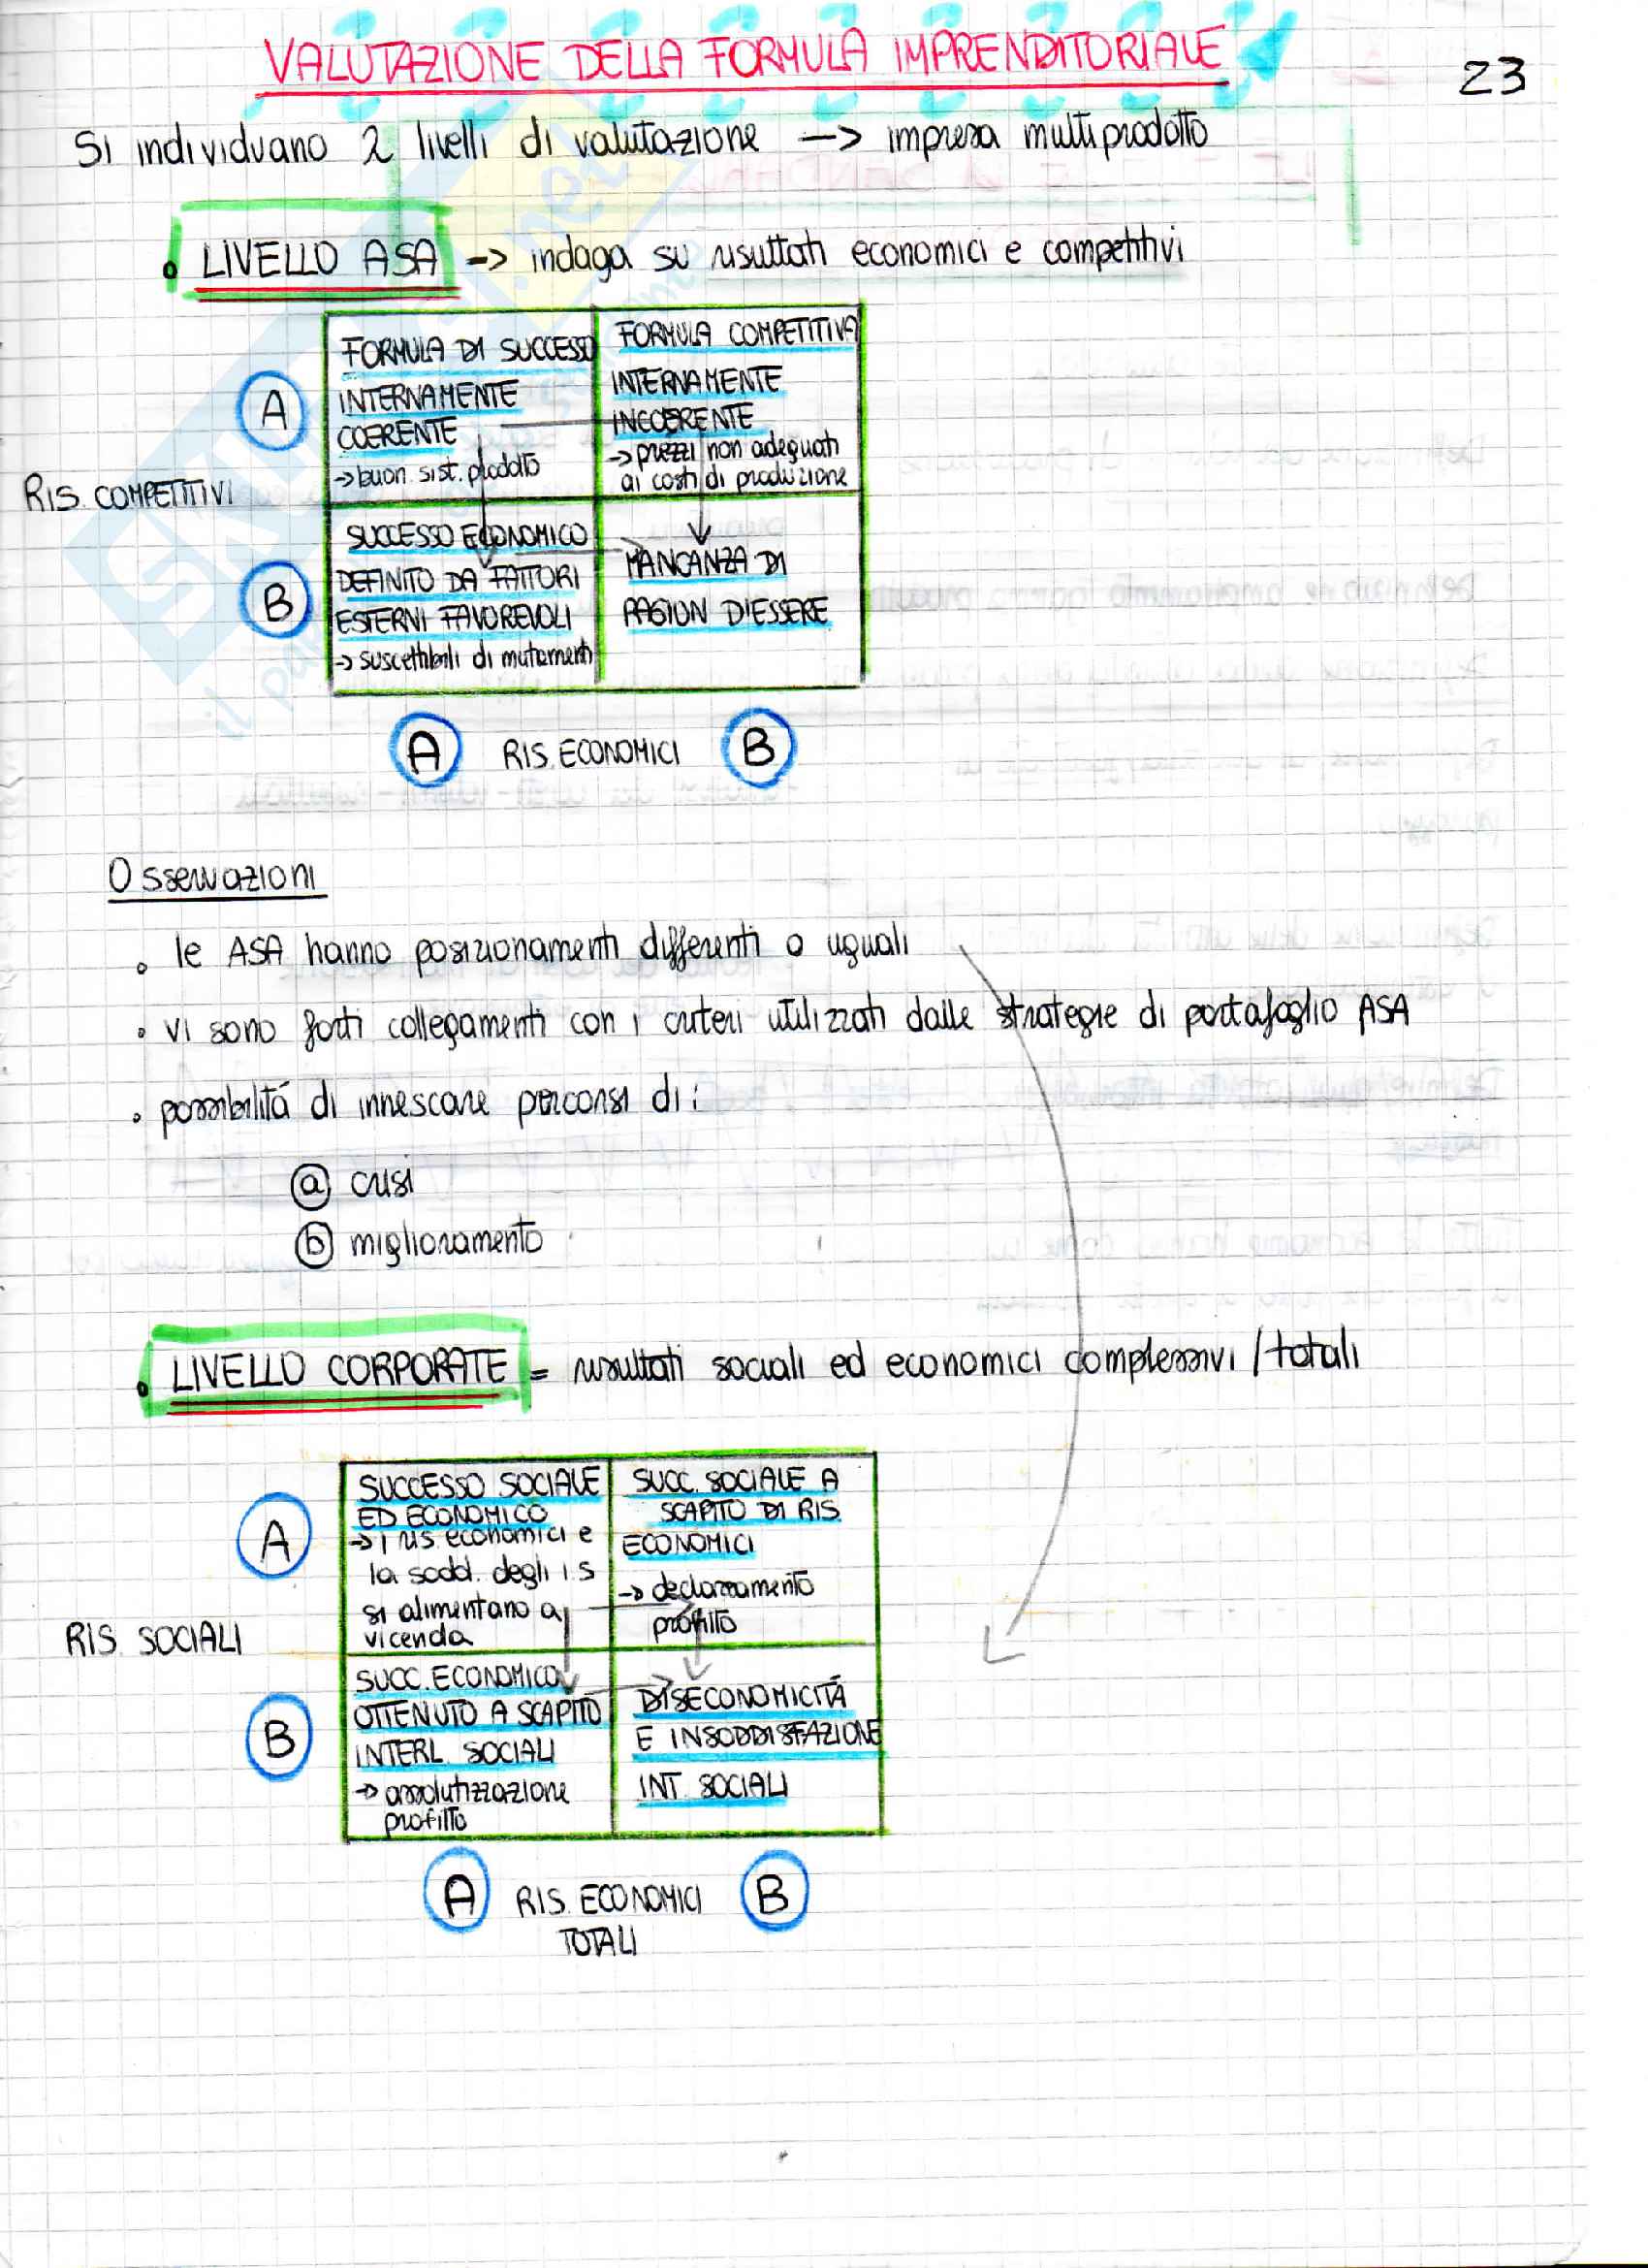 VALUTAZIONE DELLA FORMULA IMPRENDITORIALE
23
Si individuano 2 livelli di valutazione —> impresa multiprodotto
• LIVELLO ASA -> indaga su risultati economici e competitivi
FORMULA DI SUCCESSO
INTERNAMENTE
COERENTE
-> buon sist. prodotto
FORMULA COMPETITIVA
INTERNAMENTE
INCOERENTE
-> prezzi non adeguati
ai costi di produzione
A
RIS. COMPETITIVI
B
SUCCESSO ECONOMICO
DEFINITO DA FATTORI
ESTERNI FAVOREVOLI
-> suscettibili di mutamenti
MANCANZA DI
RAGION D'ESSERE
A RIS. ECONOMICI B
Osservazioni
• le ASA hanno posizionamenti differenti o uguali
• vi sono forti collegamenti con i criteri utilizzati dalle strategie di portafoglio ASA
• possibilitá di innescare percorsi di:
a) crisi
b) miglioramento
• LIVELLO CORPORATE = risultati sociali ed economici complessivi / totali
SUCCESSO SOCIALE
ED ECONOMICO
-> i ris. economici e
la sodd. degli i.s
si alimentano a
vicenda
SUCC. SOCIALE A
SCAPITO DI RIS.
ECONOMICI
-> declassamento
profitto
A
RIS. SOCIALI
B
SUCC. ECONOMICO
OTTENUTO A SCAPITO
INTERL. SOCIALI
-> assolutizzazione
profitto
DISECONOMICITÁ
E INSODDISFAZIONE
INT. SOCIALI
A RIS. ECONOMICI B
TOTALI